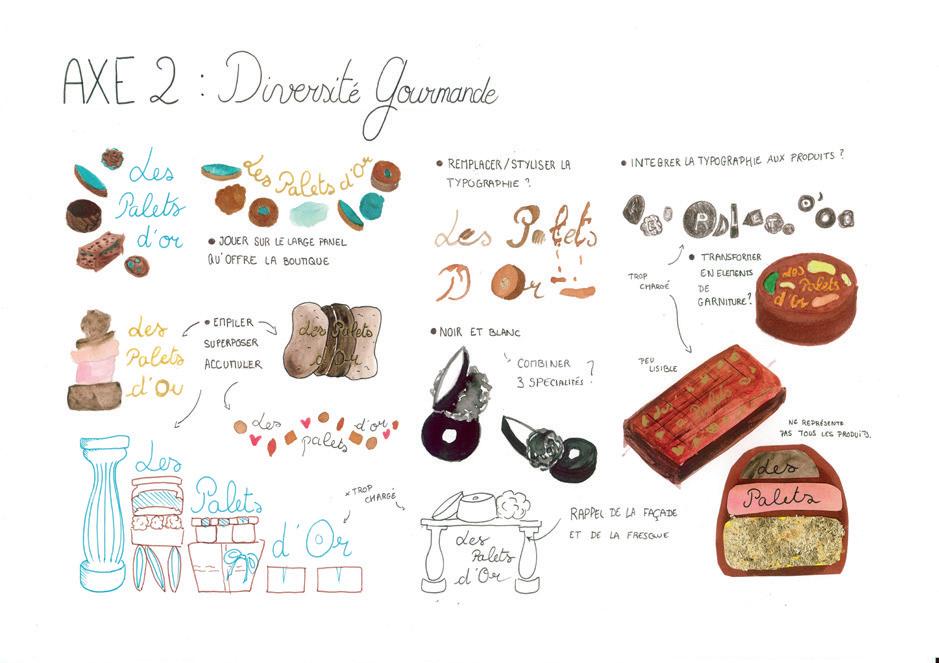 AXE 2 : Diversité Gourmande
Les
Palets
d'or
Les Palets d'or
• JOUER SUR LE LARGE PANEL
QU'OFFRE LA BOUTIQUE
• REMPLACER/STYLISER LA
TYPOGRAPHIE ?
Les Palets
D'Or
• INTEGRER LA TYPOGRAPHIE AUX PRODUITS ?
TROP
CHARGÉ
• TRANSFORMER
EN ELEMENTS
DE
GARNITURE ?
Les
Palets
d'Or
Les
Palets
d'Or
• EMPILER
SUPERPOSER
ACCUMULER
Les Palets
d'Or
Les d'or
palets
• NOIR ET BLANC
COMBINER
3 SPECIALITÉS ?
PEU
LISIBLE
NE REPRÉSENTE
PAS TOUS LES PRODUITS.
Les
Palets
Les
Palets
d'Or
× TROP
CHARGÉ
Les
Palets
d'Or
RAPPEL DE LA FAÇADE
ET DE LA FRESQUE